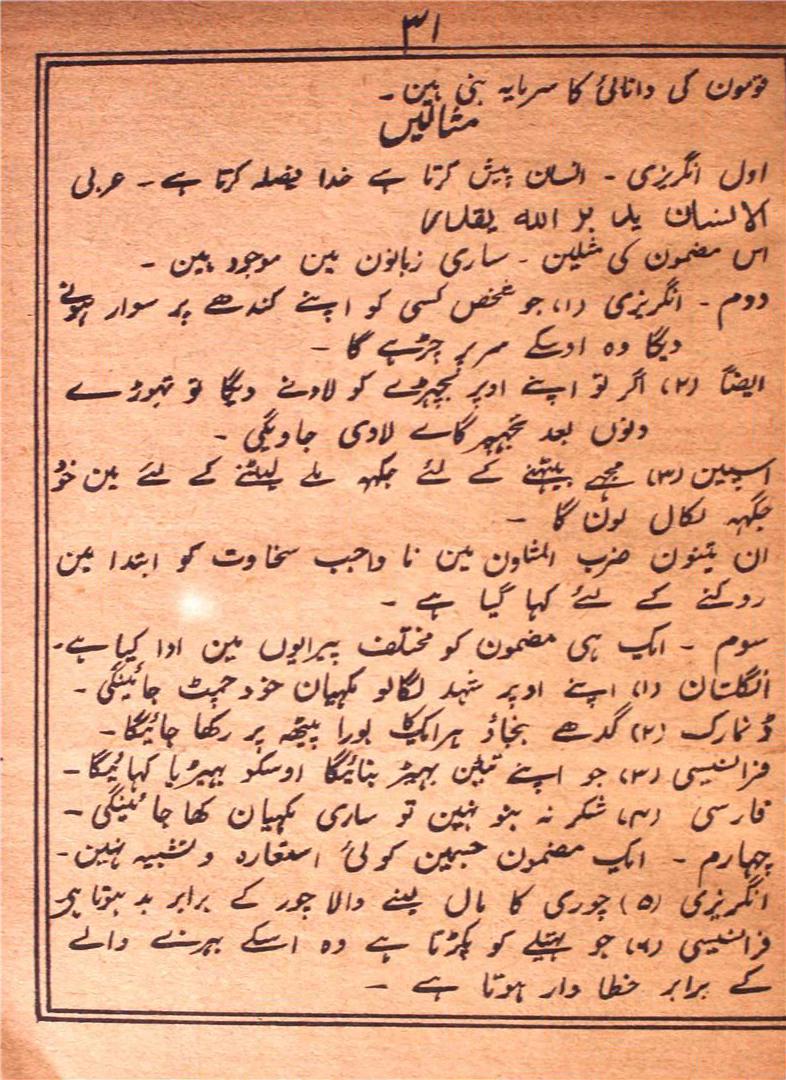 ۳۱
قومون کی دانائی کا سرمایہ بنی ہین۔
مثالیں
اول انگریزی ۔ انسان پیش کرتا ہے خدا فیصلہ کرتا ہے ۔ عربی
الانسان یدبر اللہ یقدر
اس مضمون کی مثلین ۔ ساری زبانون مین موجود ہین ۔
دوم ۔ انگریزی (۱) جو شخص کسی کو اپنے کندھے پر سوار ہونے
دیگا وہ اوسکے سر پر چڑہے گا ۔
ایضاً (۲) اگر تو اپنے اوپر بچہڑے کو لادنے دیگا تو تہوڑے
دنوں بعد تجہپر گاے لادی جاویگی ۔
اسپین (۳) مجہے بیٹہنے کے لئے جگہہ ملے لیٹنے کے لئے مین خود
جگہہ نکال لون گا ۔
ان تینون ضرب المثاون مین نا واجب سخاوت کو ابتدا مین
روکنے کے لئے کہا گیا ہے ۔
سوم ۔ ایک ہی مضمون کو مختلف پیرایوں مین ادا کیا ہے۔
انگلستان (۱) اپنے اوپر شہد لگالو مکہیان خود چمٹ جائینگی ۔
ڈنمارک (۲) گدھے بنجاؤ ہر ایک کا بورا پیٹھہ پر رکھا جائیگا ۔
فرانسیسی (۳) جو اپنے تئین بہیڑ بنائیگا اوسکو بہیڑیا کہائیگا ۔
فارسی (۴) شکر نہ بنو نہین تو ساری مکہیان کھا جائینگی ۔
چہارم ۔ ایک مضمون جسمین کوئی استعارہ و تشبیہ نہین ۔
انگریزی (۵) چوری کا مال لینے والا چور کے برابر بد ہوتا ہی
فرانسیسی (۶) جو تہیلے کو پکڑتا ہے وہ اسکے بہرنے والے
کے برابر خطا وار ہوتا ہے ۔